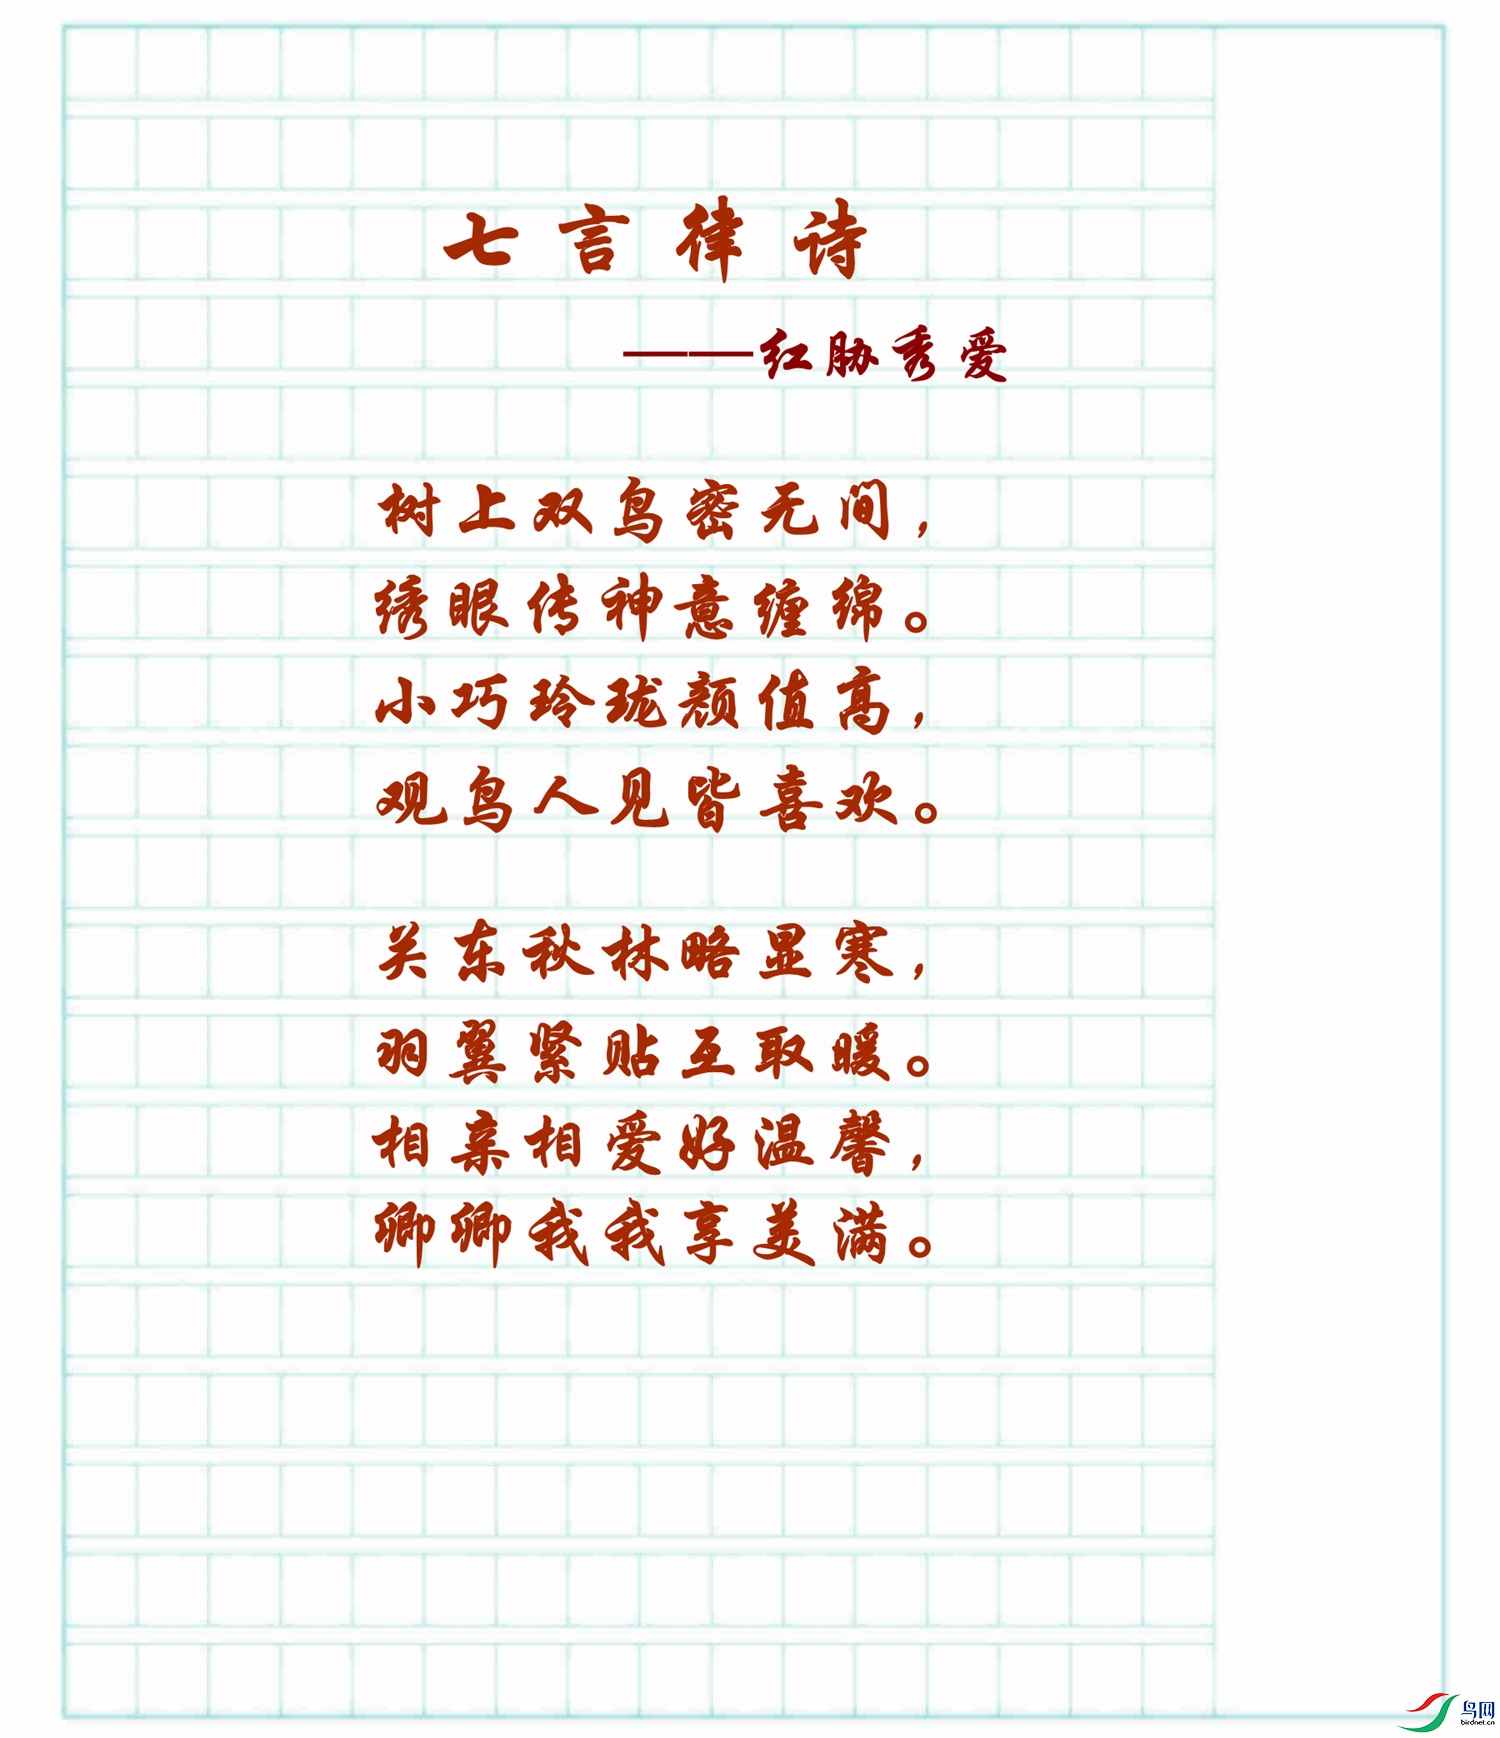 七言律诗
——红胁秀爱
树上双鸟密无间，
绣眼传神意缠绵。
小巧玲珑颜值高，
观鸟人见皆喜欢。
关东秋林略显寒，
羽翼紧贴互取暖。
相亲相爱好温馨，
卿卿我我享美满。
鸟网
birdnet.cn